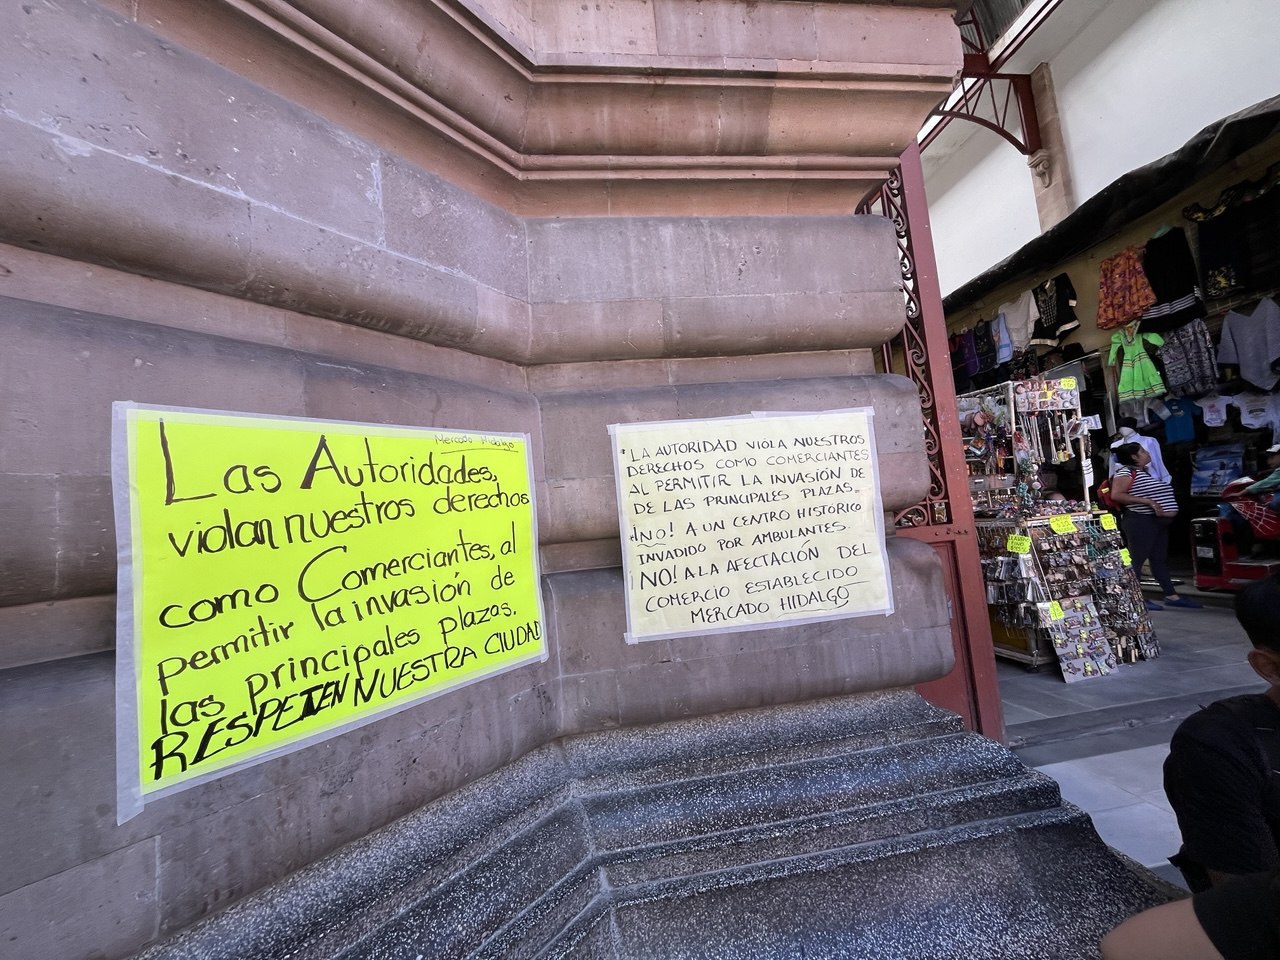 Mercado Hidalgo
Las Autoridades,
violan nuestros derechos
como Comerciantes, al
permitir la invasión de
las principales plazas.
RESPETEN NUESTRA CIUDAD
* LA AUTORIDAD VIOLA NUESTROS
DERECHOS COMO COMERCIANTES
AL PERMITIR LA INVASIÓN DE
DE LAS PRINCIPALES PLAZAS.
¡NO! A UN CENTRO HISTÓRICO
INVADIDO POR AMBULANTES.
NO! A LA AFECTACIÓN DEL
COMERCIO ESTABLECIDO
MERCADO HIDALGO